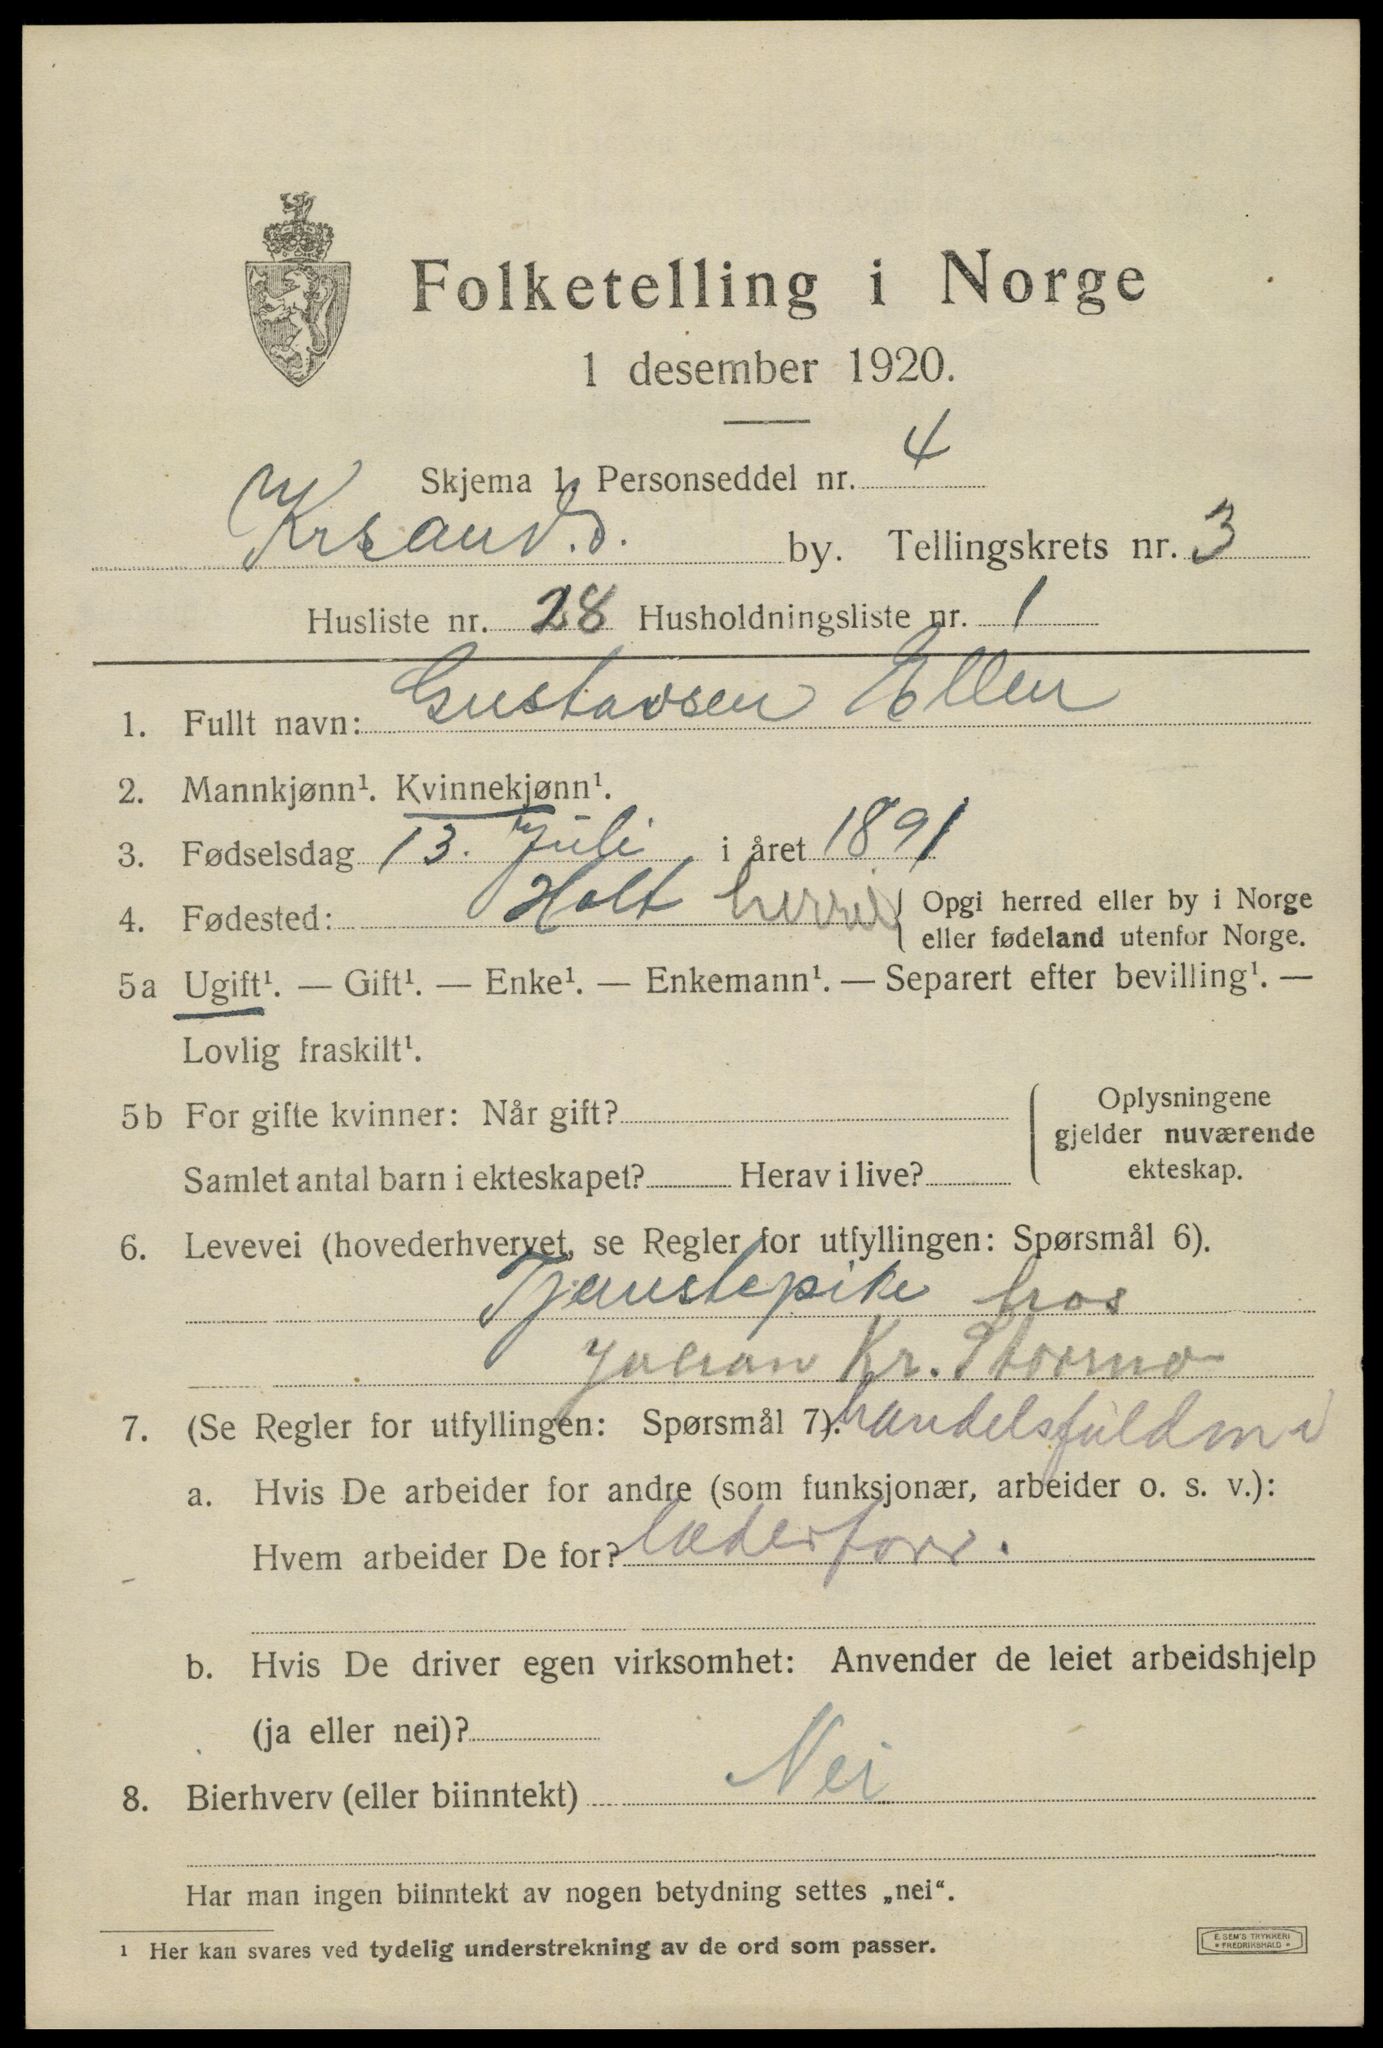 Folketelling i Norge
1 desember 1920.
Skjema 1. Personseddel nr. 4
Krsand.s. by. Tellingskrets nr. 3
Husliste nr. 28 Husholdningsliste nr. 1
1. Fullt navn: Gustavsen Ellen
2. Mannkjønn¹. Kvinnekjønn¹.
3. Fødselsdag 13. Juli i året 1891
4. Fødested: Holt herred { Opgi herred eller by i Norge
eller fødeland utenfor Norge.
5a Ugift¹. — Gift¹. — Enke¹. — Enkemann¹. — Separert efter bevilling¹. —
Lovlig fraskilt¹.
5b For gifte kvinner: Når gift?
Samlet antal barn i ekteskapet? Herav i live?
Oplysningene
gjelder nuværende
ekteskap.
6. Levevei (hovederhvervet, se Regler for utfyllingen: Spørsmål 6).
Tjenstepike hos
Johan Kr.
7. (Se Regler for utfyllingen: Spørsmål 7). handelsfuldm i
a. Hvis De arbeider for andre (som funksjonær, arbeider o. s. v.):
Hvem arbeider De for? læderforr.
b. Hvis De driver egen virksomhet: Anvender de leiet arbeidshjelp
(ja eller nei)?
8. Bierhverv (eller biinntekt) Nei
Har man ingen biinntekt av nogen betydning settes „nei“.
¹ Her kan svares ved tydelig understrekning av de ord som passer.
E. SEM'S TRYKKERI
* FREDRIKSHALD *